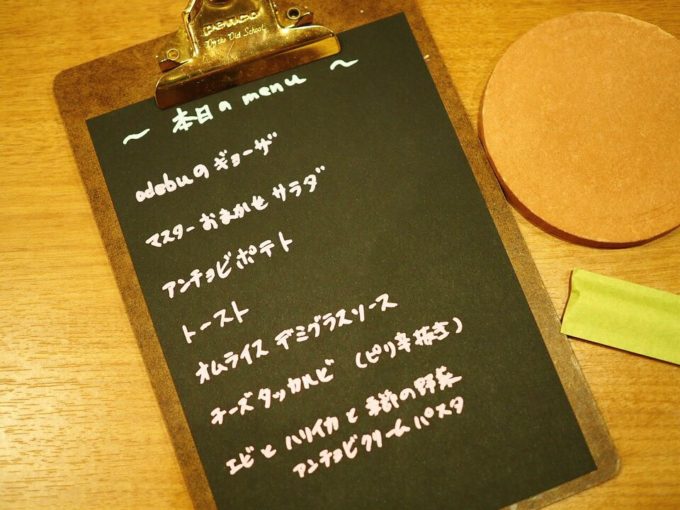 To the Old School
〜 本日の menu 〜
odebuの ギョーザ
マスター おまかせ サラダ
アンチョビポテト
トースト
オムライス デミグラスソース
チーズタッカルビ (ピリ辛抜き)
エビと ハリイカと 季節の野菜
アンチョビクリームパスタ